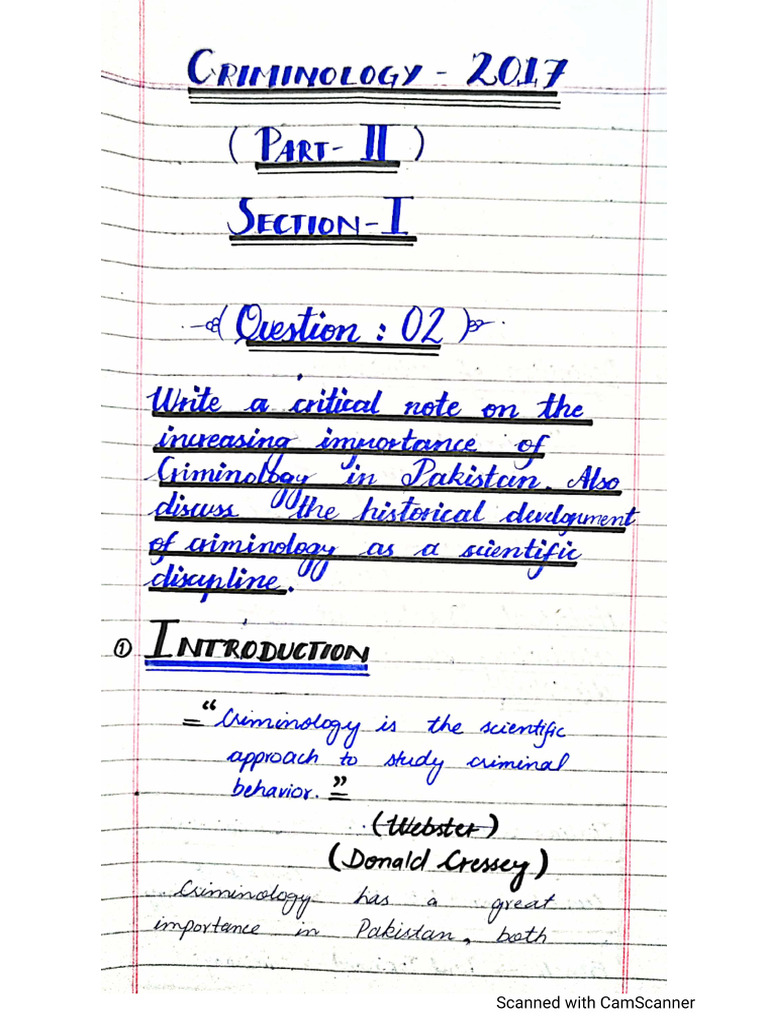 CRIMINOLOGY - 2017
(PART- II)
SECTION-I
(Question : 02)
Write a critical note on the
increasing importance of
Criminology in Pakistan. Also
discuss the historical development
of criminology as a scientific
discipline.
① INTRODUCTION
"Criminology is the scientific
approach to study criminal
behavior."
(Webster)
(Donald Cressey)
Criminology has a great
importance in Pakistan, both
Scanned with CamScanner